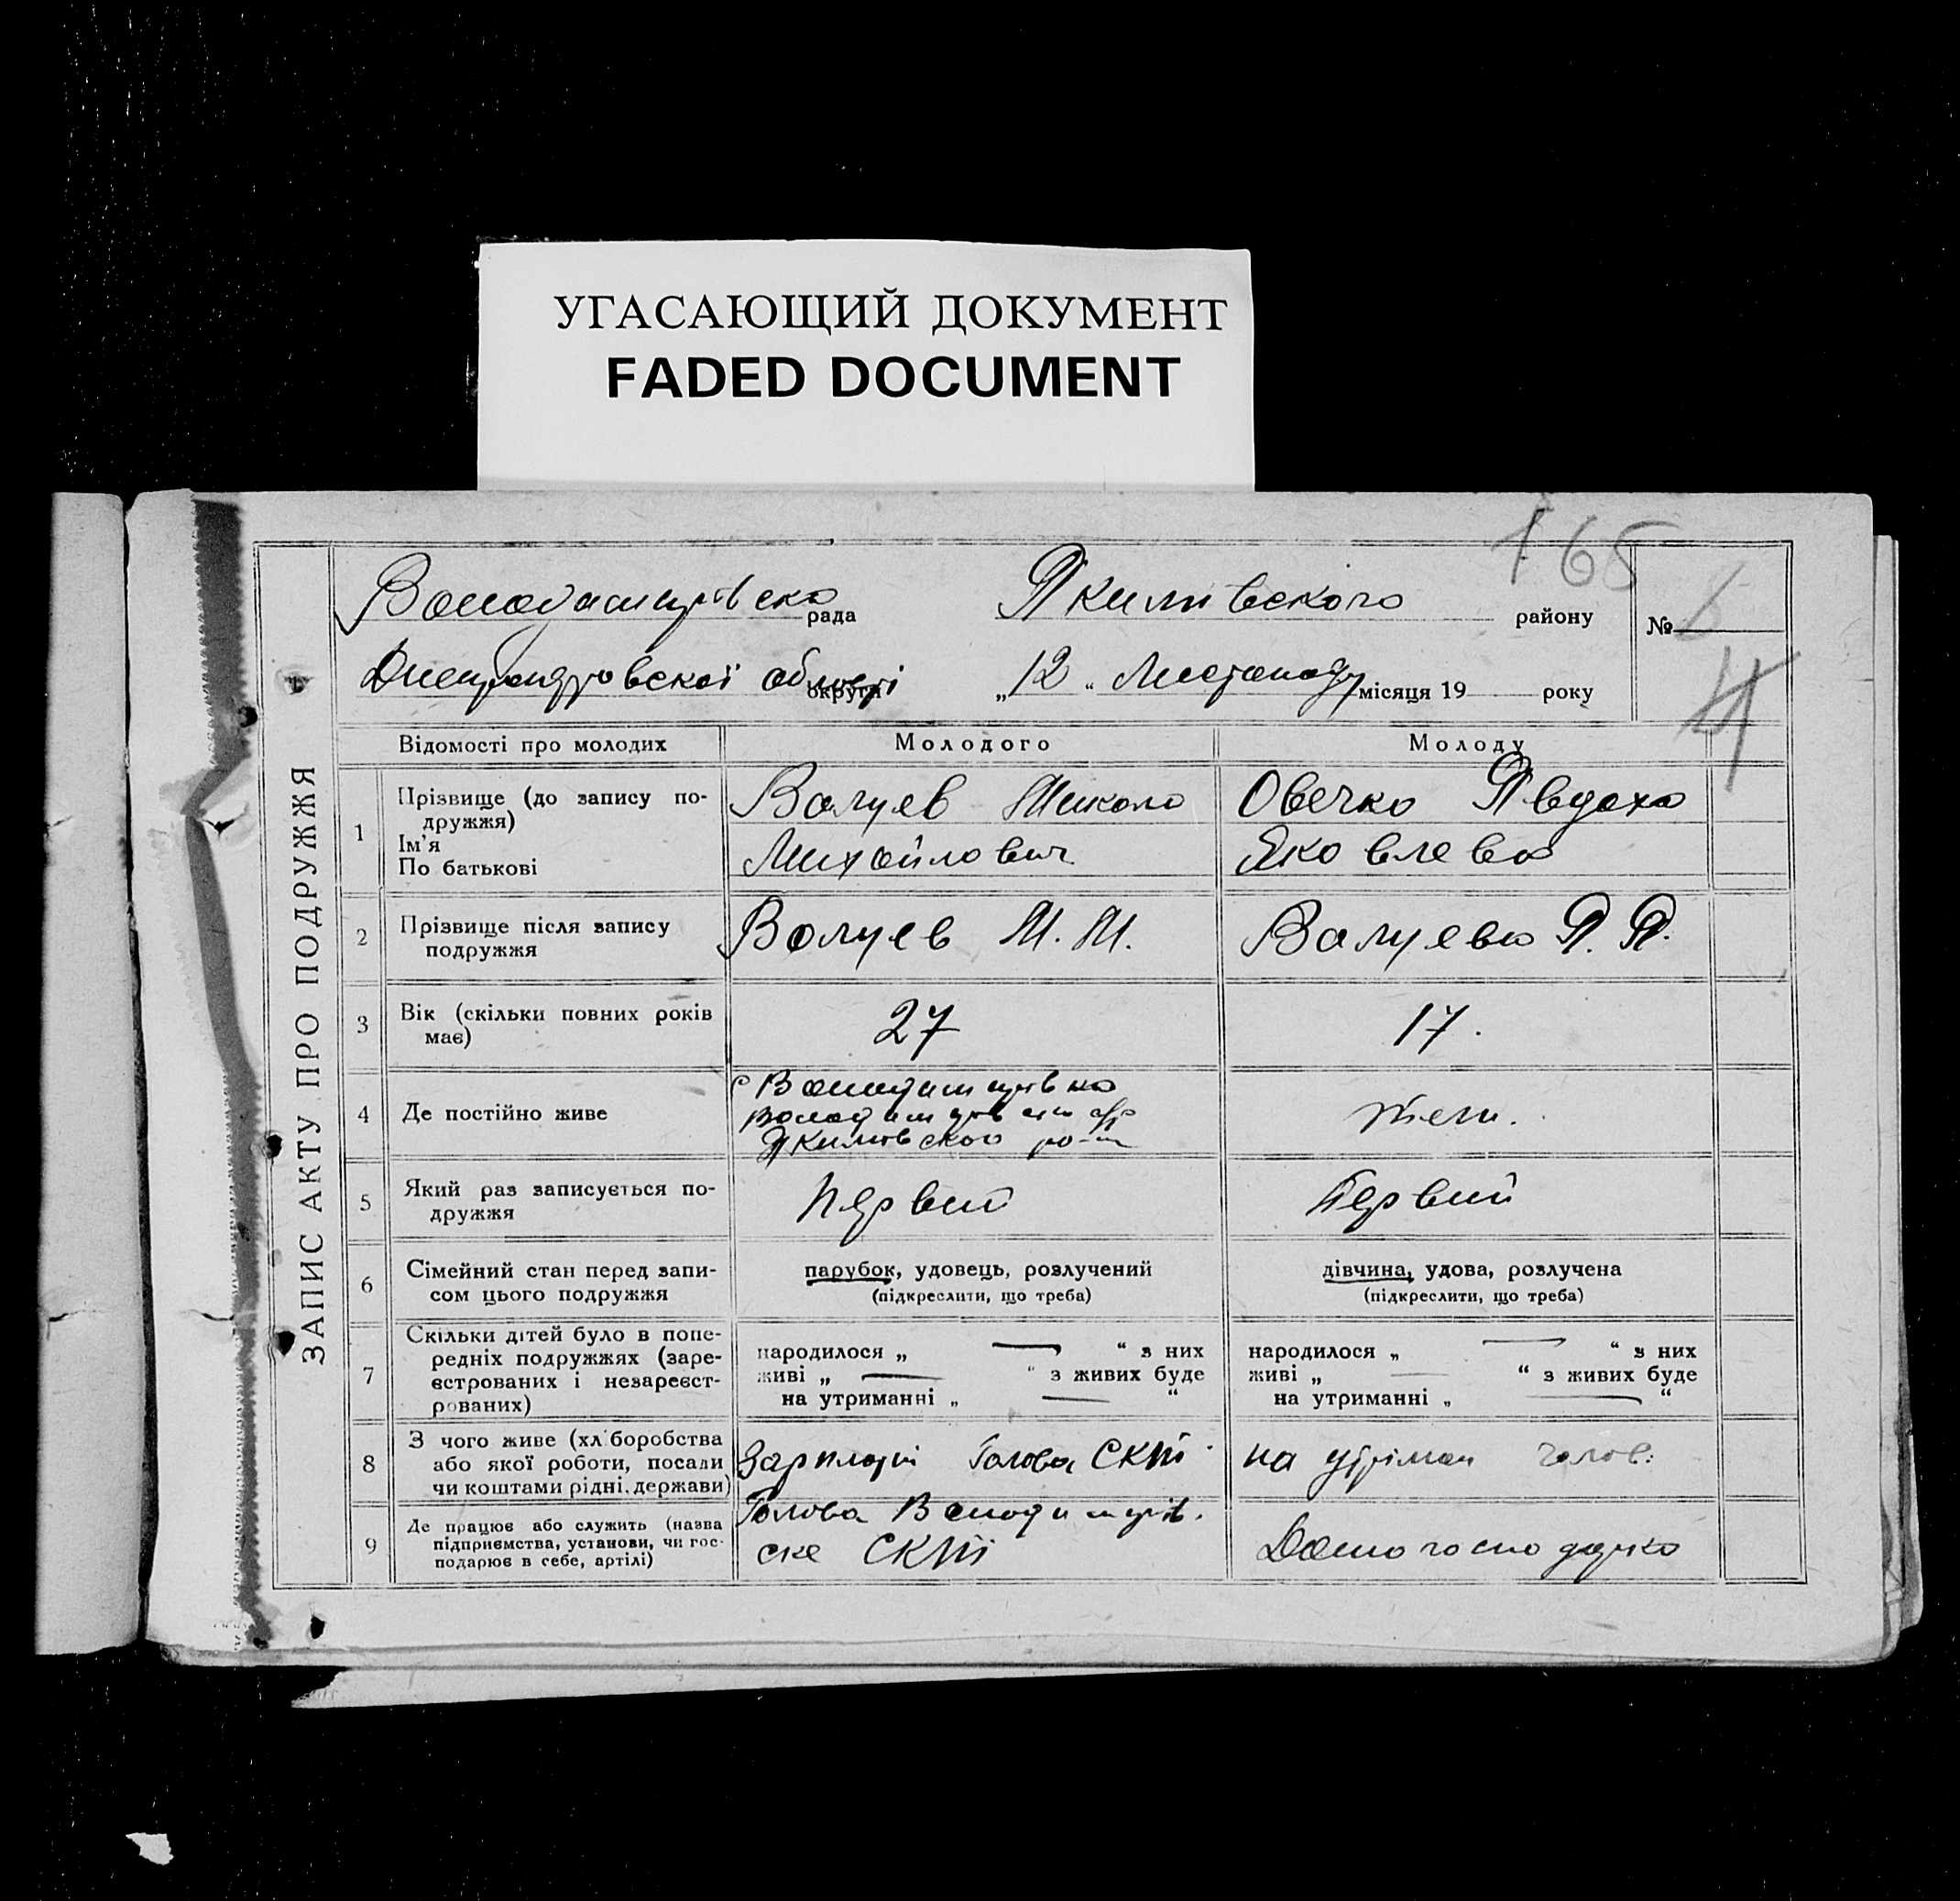 УГАСАЮЩИЙ ДОКУМЕНТ
FADED DOCUMENT
165
ЗАПИС АКТУ ПРО ПОДРУЖЖЯ
Володимирівска рада Якимівского району №
Днепропетровскої області округа „12“ Листопаду місяця 19 року
4
Відомості про молодих Молодого Молоду
1 Прізвище (до запису по-
дружжя)
Ім'я
По батькові
Валуєв Микола
Михайлович
Овечко Явдоха
Яковлева
2 Прізвище після запису
подружжя
Валуєв М. М. Валуєва Я. Я.
3 Вік (скільки повних років
має)
27 17.
4 Де постійно живе
с Володимирівка
Якимівского ро-н
теж.
5 Який раз записується по-
дружжя
Первий Первий
6 Сімейний стан перед запи-
сом цього подружжя
парубок, удовець, розлучений
(підкреслити, що треба)
дівчина, удова, розлучена
(підкреслити, що треба)
7 Скільки дітей було в попе-
редніх подружжях (заре-
єстрованих і незареєст-
рованих)
народилося „ — “ з них
живі „ — “ з живих буде
на утриманні „ — “
народилося „ — “ з них
живі „ — “ з живих буде
на утриманні „ — “
8 З чого живе (хліборобства
або якої роботи, посади
чи коштами рідні, держави)
Зарплоти Голова СКТ
на утріман голов.
9 Де працює або служить (назва
підприємства, установи, чи гос-
подарює в себе, артілі)
Голова Володимирів.
ске СКТ
Домогосподарка